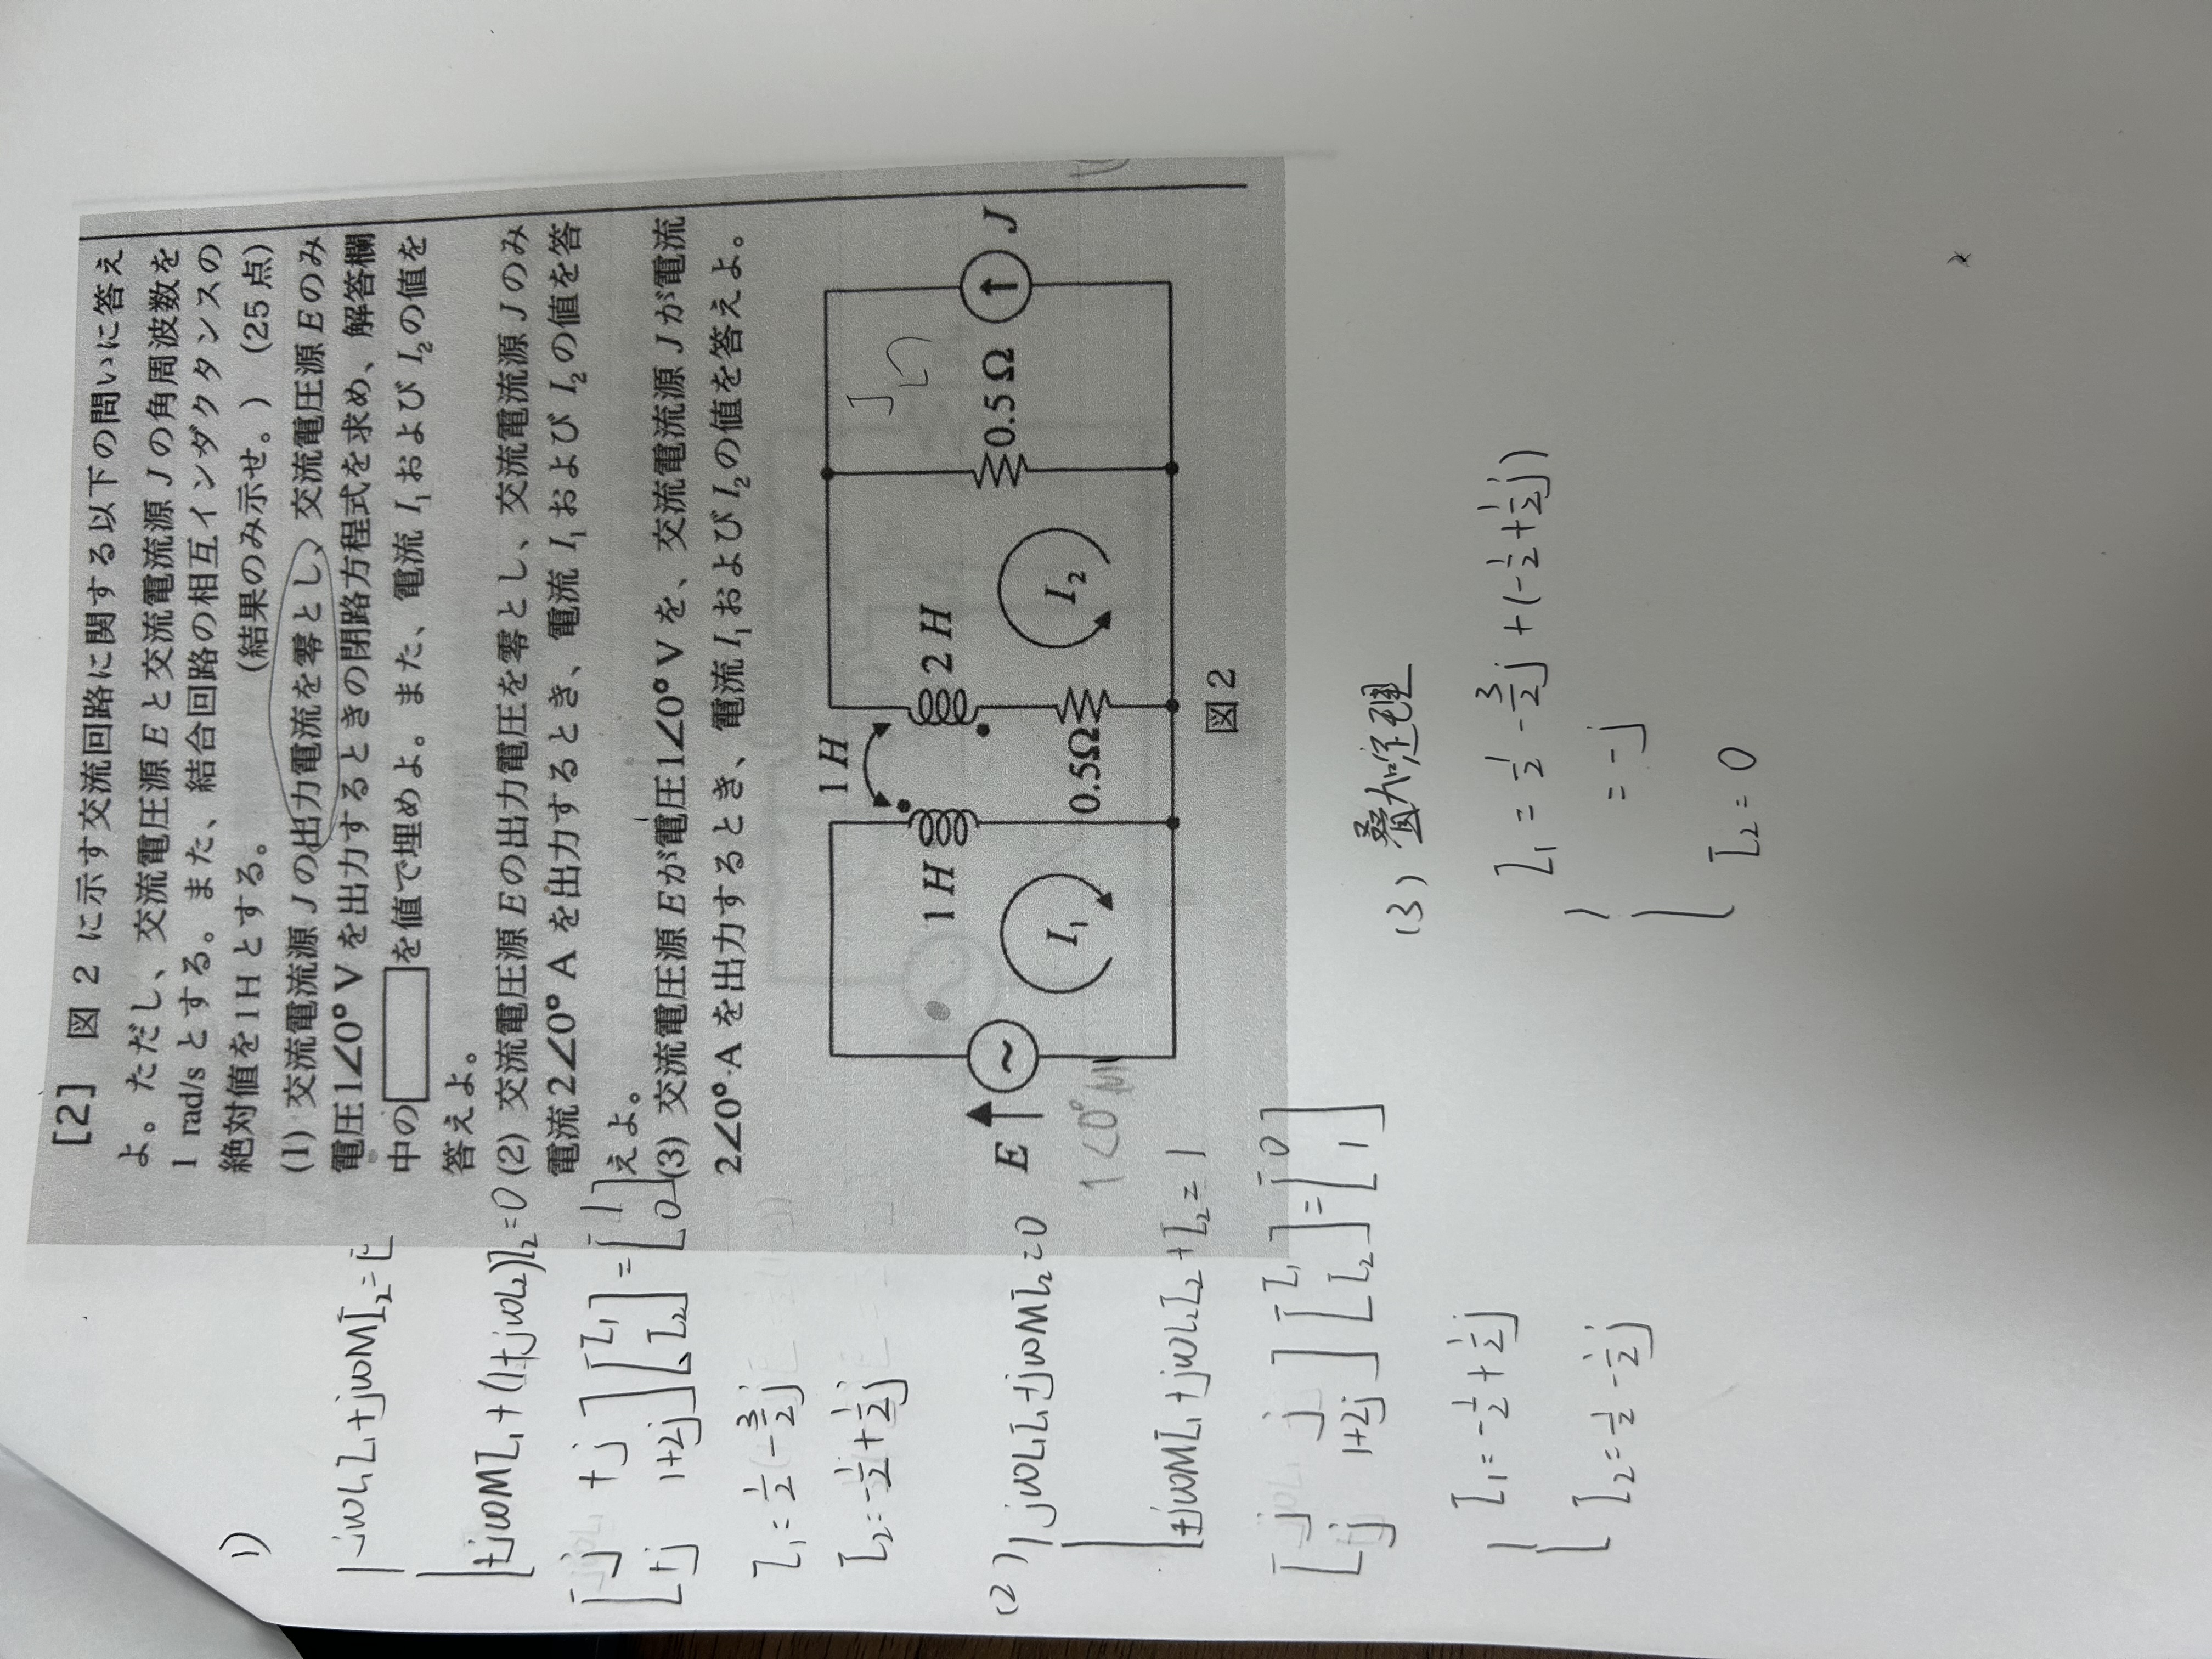 [2] 図 2 に示す交流回路に関する以下の問いに答え
よ。ただし、交流電圧源 E と交流電流源 J の角周波数を
1 rad/s とする。また、結合回路の相互インダクタンスの
絶対値を1Hとする。 (結果のみ示せ。) (25 点)
(1) 交流電流源 J の出力電流を零とし、交流電圧源 E のみ
電圧1∠0° V を出力するときの閉路方程式を求め、解答欄
中の を値で埋めよ。また、電流 I₁ および I₂ の値を
答えよ。
(2) 交流電圧源 E の出力電圧を零とし、交流電流源 J のみ
電流2∠0° A を出力するとき、電流 I₁ および I₂ の値を答
えよ。
(3) 交流電圧源 E が電圧1∠0° V を、交流電流源 J が電流
2∠0° A を出力するとき、電流 I₁ および I₂ の値を答えよ。
1 H
1 H
2 H
E
I₁
0.5Ω
I₂
0.5 Ω
J
J
1∠0°
図 2
1)
jωL₁I₁+jωMI₂=E
+jωMI₁+(1+jωL₂)I₂=0
[j +j
+j 1+2j] [I₁
I₂] = [1
0]
I₁=1/2-3/2j
I₂=-1/2+1/2j
(2)
jωL₁I₁+jωMI₂=0
+jωMI₁+jωL₂I₂+I₂=1
[j j
j 1+2j] [I₁
I₂] = [0
1]
I₁=-1/2+1/2j
I₂=1/2-1/2j
(3) 叠加定理
I₁=1/2-3/2j+(-1/2+1/2j)
=-j
I₂=0